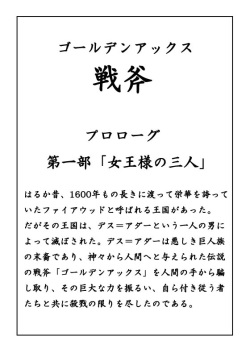 ゴールデンアックス
戦斧
プロローグ
第一部「女王様の三人」
はるか昔、1600年もの長きに渡って栄華を誇って
いたファイアウッドと呼ばれる王国があった。
だがその王国は、デス＝アダーという一人の男に
よって滅ぼされた。デス＝アダーは悪しき巨人族
の末裔であり、神々から人間へと与えられた伝説
の戦斧「ゴールデンアックス」を人間の手から騙
し取り、その巨大な力を振るい、自ら付き従う者
たちと共に殺戮の限りを尽したのである。